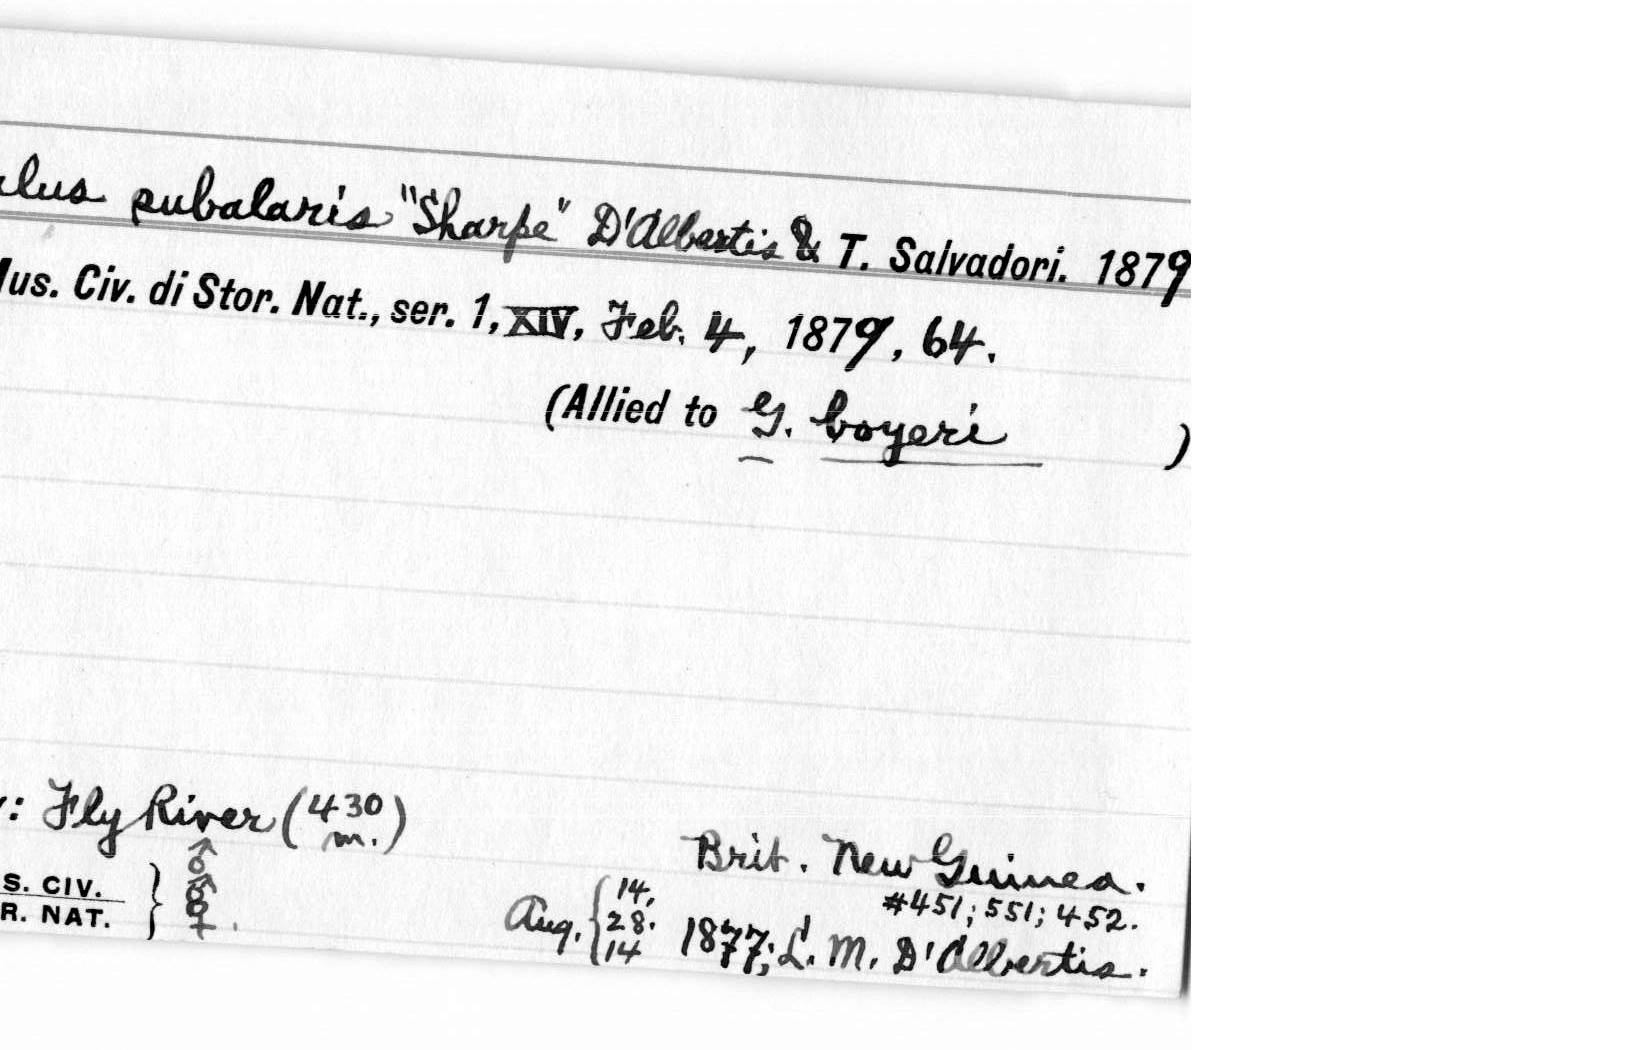 lus subalaris "Sharpe" D'Albertis & T. Salvadori. 1879
us. Civ. di Stor. Nat., ser. 1, XIV, Feb. 4, 1879, 64.
(Allied to G. boyeri )
: Fly River (430 m.)
Brit. New Guinea.
♂
#451; 551; 452.
S. CIV.
R. NAT. } ♂ ♀.
Aug. { 14, 28. 14 1877; L. M. D'Albertis.